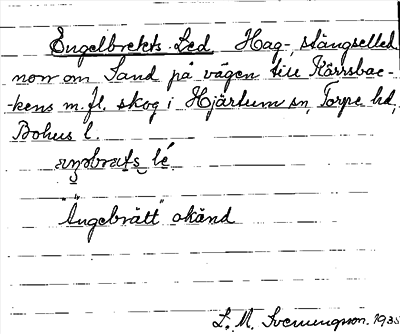 Engelbrekts Led Hag-, stängselled
norr om Sand på vägen till Kärrsbac-
-kens m.fl. skog i Hjärtum sn, Torpe hd,
Bohus l.
"Ängebrätt" okänd
L. M. Svenungsson. 1935